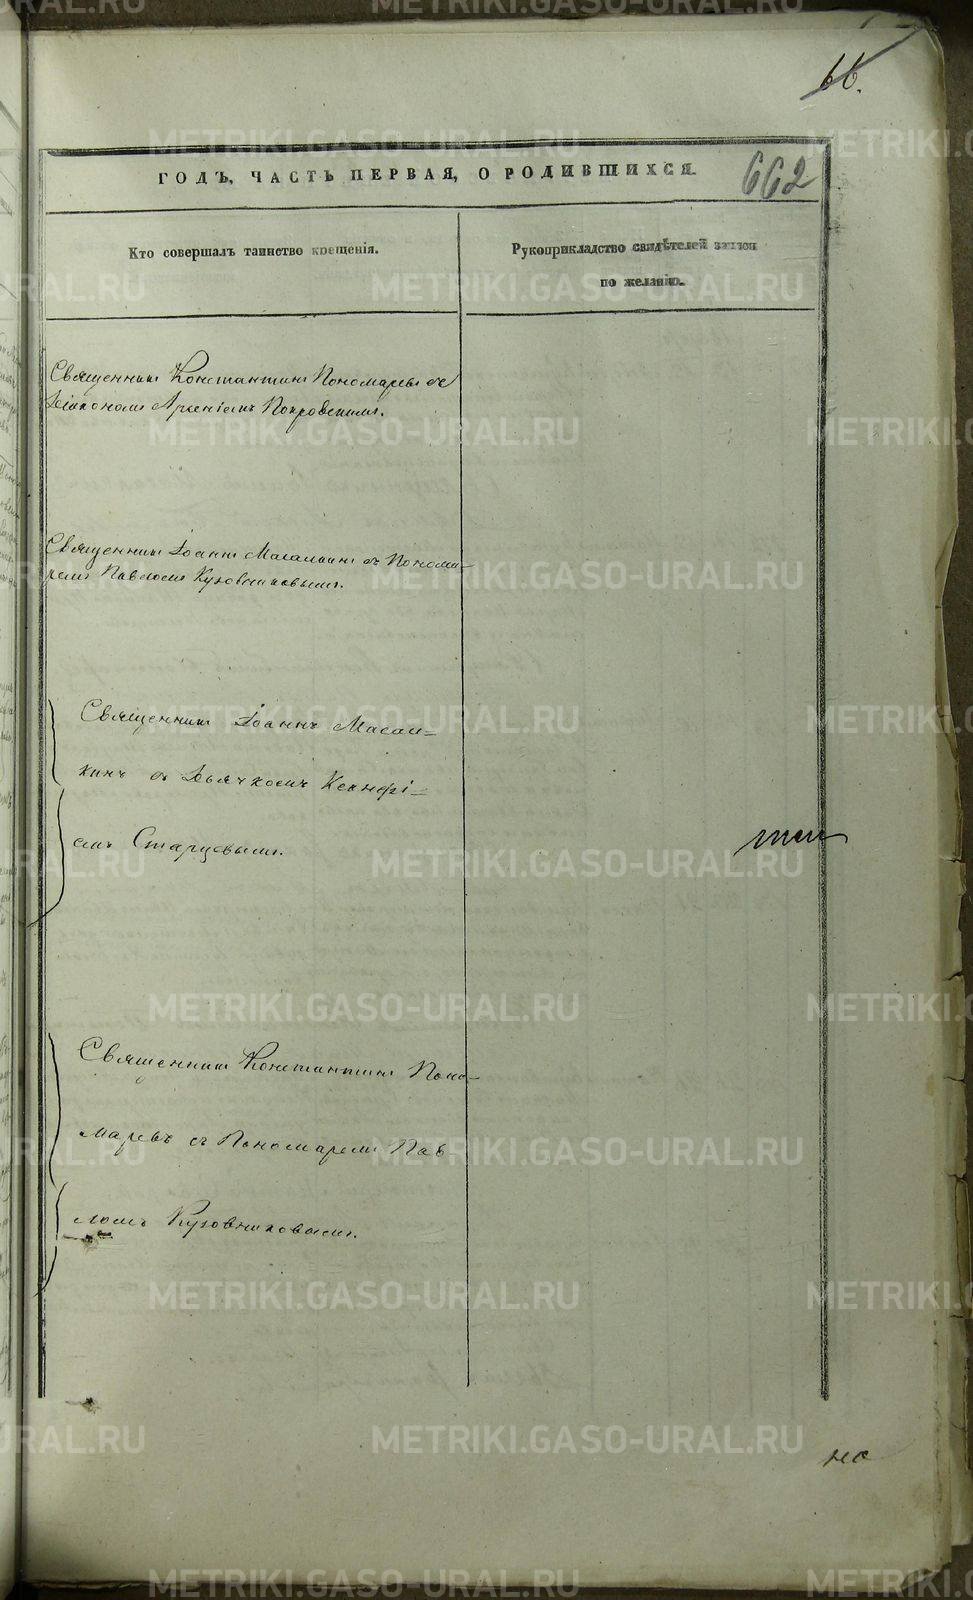 66.
ГОДЪ, ЧАСТЬ ПЕРВАЯ, О РОДИВШИХСЯ.
662
Кто совершалъ таинство крещенія.
Рукоприкладство свидѣтелей записи
по желанію.
Священникъ Константинъ Пономаревъ съ
Діакономъ Арсеніемъ Покровскимъ.
Священникъ Іоаннъ Масалкинъ съ Понома-
ремъ Павломъ Кузовниковымъ.
Священникъ Іоаннъ Масал-
кинъ съ Дьячкомъ Ксенофі-
емъ Старцовымъ.
Священникъ Константинъ Поно-
маревъ съ Пономаремъ Пав
ломъ Кузовниковымъ.
METRIKI.GASO-URAL.RU